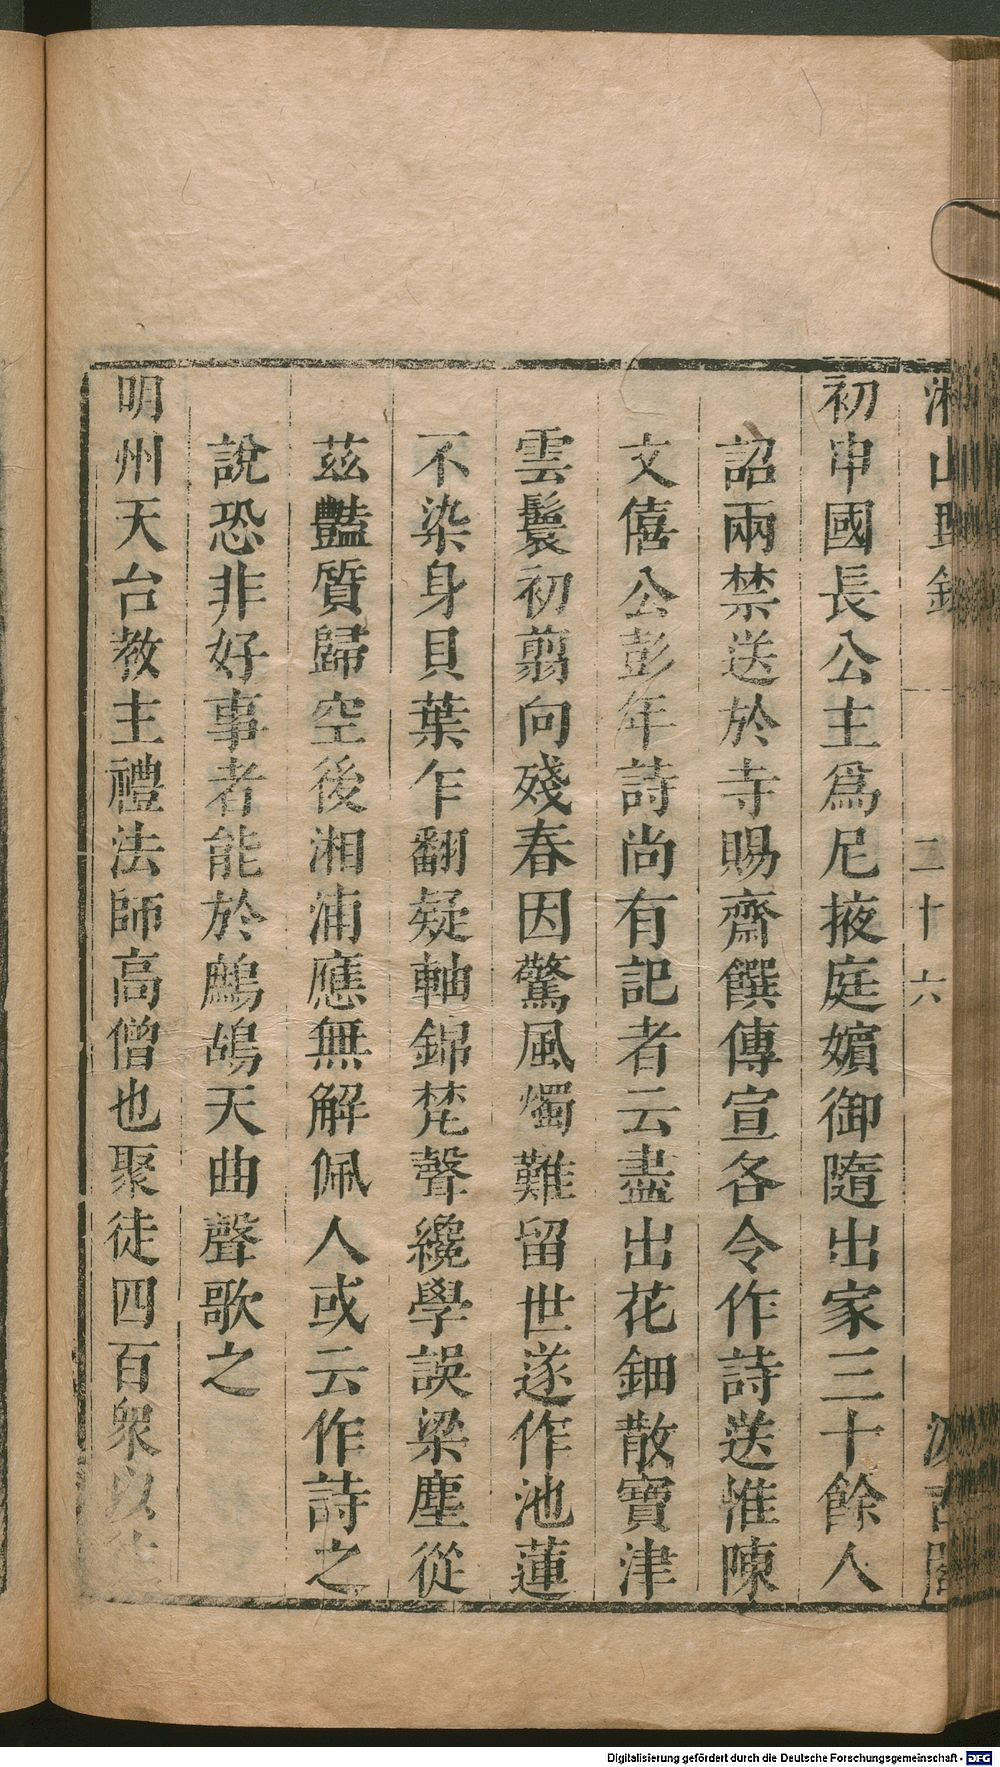 湘山野錄 二十六 汲古閣
初申國長公主爲尼掖庭嬪御隨出家三十餘人
詔兩禁送於寺賜齋饌傳宣各令作詩送惟陳
文僖公彭年詩尚有記者云盡出花鈿散寶津
雲鬟初翦向殘春因驚風燭難留世遂作池蓮
不染身貝葉乍翻疑軸錦梵聲纔學誤梁塵從
茲豔質歸空後湘浦應無解佩人或云作詩之
說恐非好事者能於鷓鴣天曲聲歌之
明州天台教主禮法師高僧也聚徒四百衆以
Digitalisierung gefördert durch die Deutsche Forschungsgemeinschaft - DFG